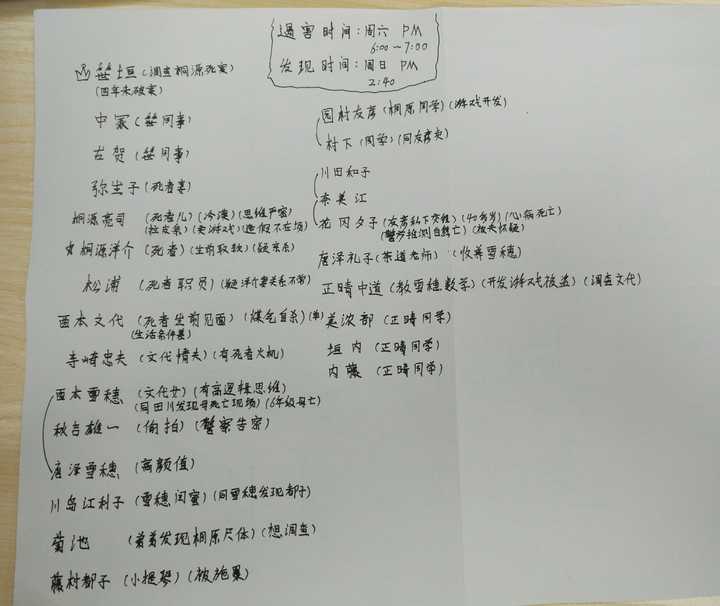 遇害时间：周六 PM
6:00～7:00
发现时间：周日 PM
2:40
笹垣（调查桐源死案）
（四年未破案）
中冢（笹同事）
古贺（笹同事）
弥生子（死者妻）
桐源亮司（死者儿）（冷漠）（思维严密）
（拉皮条）（卖游戏）（造假不在场）
桐源洋介（死者）（生前取款）（疑亲亲）
松浦（死者职员）（疑洋介妻关系不常）
西本文代（死者生前见面）（煤气自杀）（单）
（生活条件差）
寺崎忠夫（文代情夫）（有死者火机）
西本雪穗（文代女）（有高逻辑思维）
（同田川发现母死亡现场）（6年级母亡）
秋吉雄一（偷拍）（警察告密）
唐泽雪穗（高颜值）
川岛江利子（雪穗闺蜜）（同雪穗发现都子）
菊池（弟弟发现桐原尺体）（想调查）
藤村都子（小提琴）（被施暴）
园村友彦（桐原同学）（游戏开发）
村下（同学）（同友彦卖）
川田和子
奈美江
花冈夕子（友彦私下交往）（40多岁）（心病死亡）
（警方推测自然亡）（被夫怀疑）
唐泽礼子（茶道老师）（收养雪穗）
正晴中道（教雪穗数学）（开发游戏被盗）（调查文代）
美浓部（正晴同学）
垣内（正晴同学）
内藤（正晴同学）